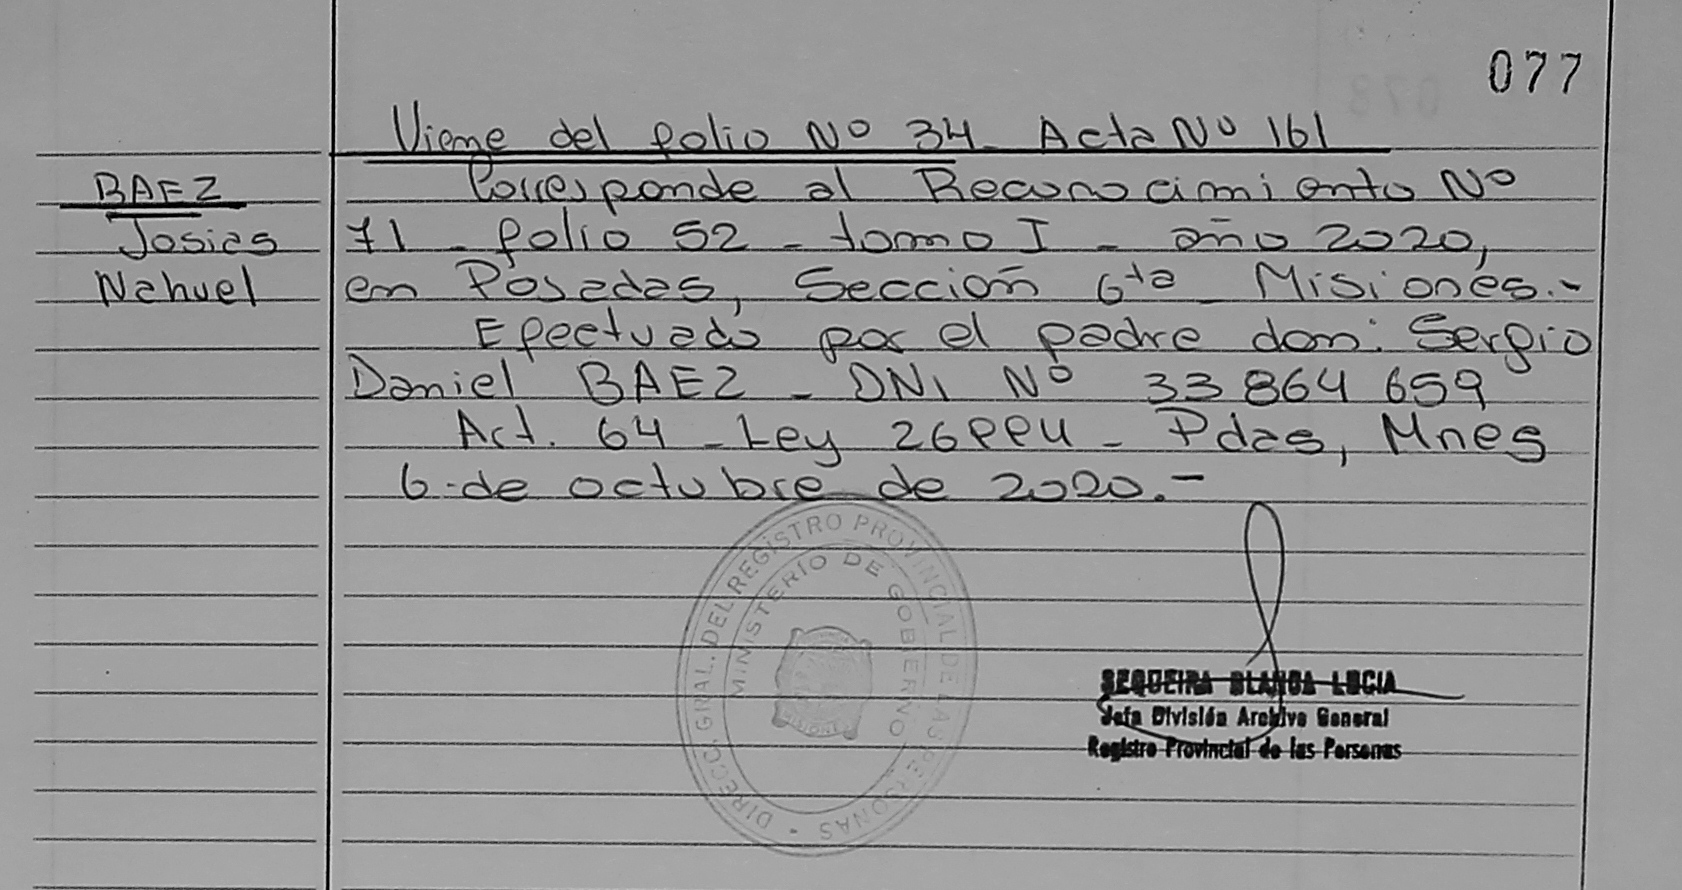 077
Viene del folio Nº 34 - Acta Nº 161
BAEZ
Josias
Nahuel
Corresponde al Reconocimiento Nº
71 - folio 52 - tomo I - año 2020,
en Posadas, Sección 6ta - Misiones.-
Efectuado por el padre don: Sergio
Daniel BAEZ - DNI Nº 33 864 659
Art. 64 - Ley 26994 - Pdas, Mnes
6 de octubre de 2020.-
DIRECC. GRAL. DEL REGISTRO PROVINCIAL DE LAS PERSONAS
MINISTERIO DE GOBIERNO
SEQUEIRA BLANCA LUCIA
Jefa División Archivo General
Registro Provincial de las Personas